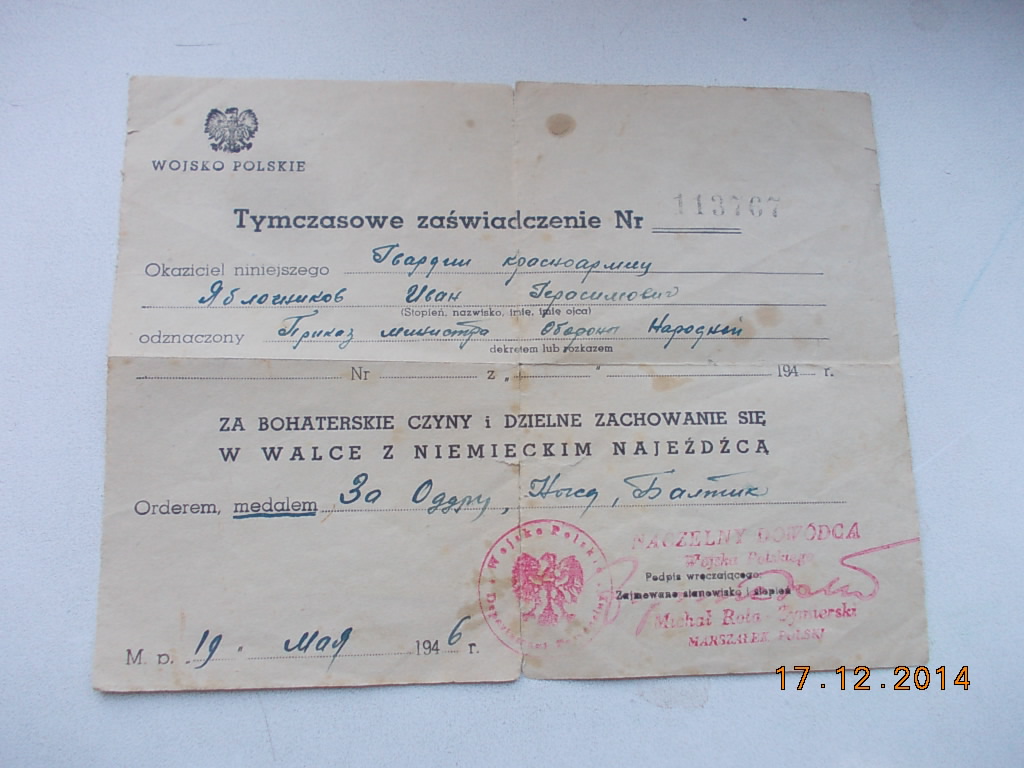 WOJSKO POLSKIE
Tymczasowe zaświadczenie Nr 113767
Okaziciel niniejszego Гвардии красноармиц
Яблочников Иван Герасимович
(Stopień, nazwisko, imię, imię ojca)
odznaczony Приказ министра Обороны Народной
dekretem lub rozkazem
Nr z „ " 194 r.
ZA BOHATERSKIE CZYNY i DZIELNE ZACHOWANIE SIĘ
W WALCE Z NIEMIECKIM NAJEŹDŹCĄ
Orderem, medalem За Одру, Нысу, Балтик
NACZELNY DOWÓDCA
Wojska Polskiego
Podpis wręczającego:
Zajmowane stanowisko i stopień
Michał Rola Żymierski
MARSZAŁEK POLSKI
Wojsko Polskie
M. p. 19 " Мая 1946 r.
17.12.2014